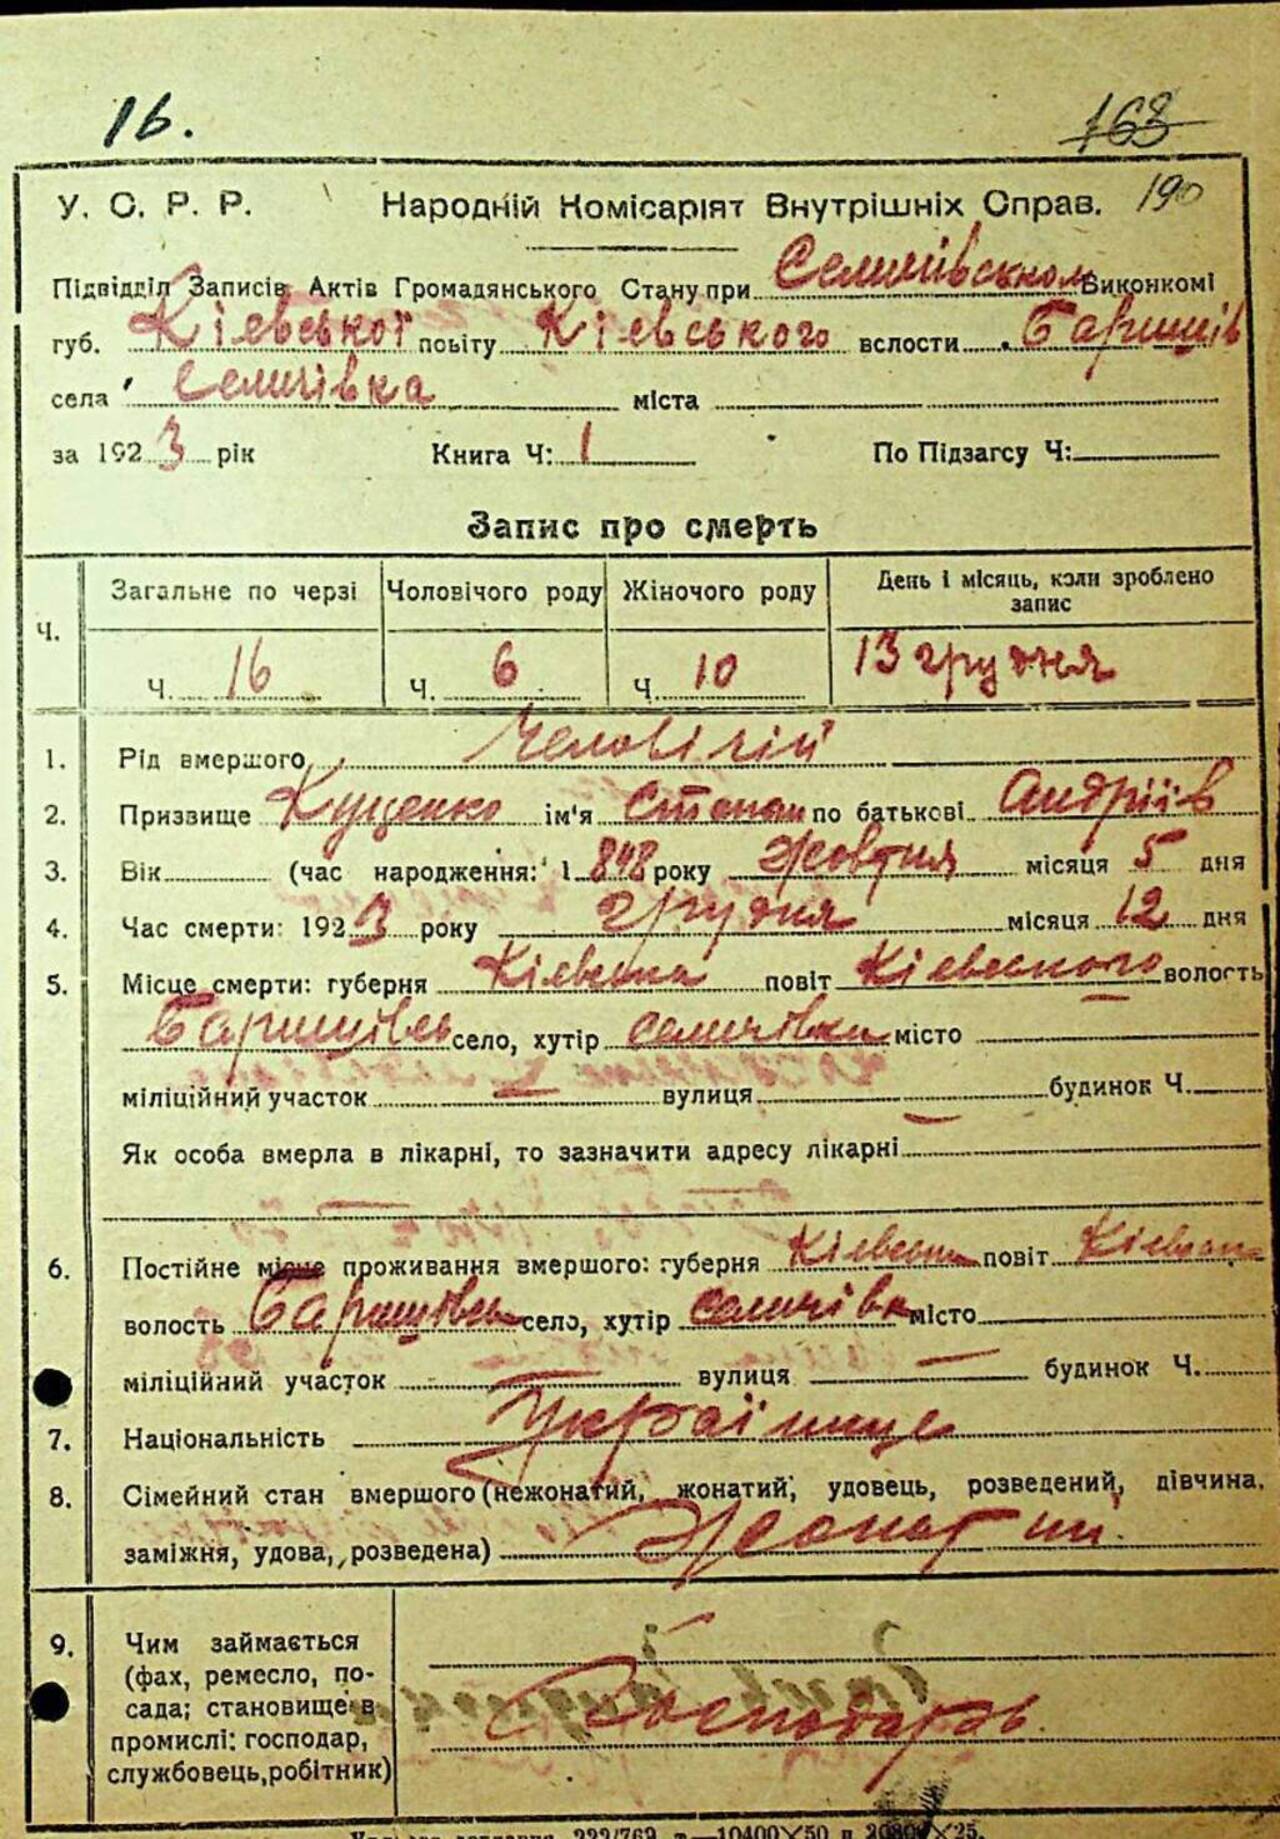 16.
163
190
У. С. Р. Р. Народній Комісаріят Внутрішніх Справ.
Підвідділ Записів Актів Громадянського Стану при Селичівском Виконкомі
губ. Кієвської повіту Кієвського вслости Баришів
села Селичівка міста
за 1923 рік Книга Ч: 1 По Підзагсу Ч:
Запис про смерть
Ч. Загальне по черзі Чоловічого роду Жіночого роду День і місяць, коли зроблено
запис
Ч. 16 Ч. 6 Ч. 10 13 грудня
1. Рід вмершого Человічій
2. Призвище Куценко ім'я Степан по батькові Андріїв
3. Вік (час народження: 1848 року Жовтня місяця 5 дня
4. Час смерти: 1923 року Грудня місяця 12 дня
5. Місце смерти: губерня Кієвська повіт Кієвского волость
Баришівсь село, хутір Селичівка місто
міліційний участок — вулиця — будинок Ч.
Як особа вмерла в лікарні, то зазначити адресу лікарні
6. Постійне місце проживання вмершого: губерня Кієвська повіт Кієвськ
волость Баришівсь село, хутір Селичівка місто
міліційний участок — вулиця — будинок Ч.
7. Національність Українце
8. Сімейний стан вмершого (нежонатий, жонатий, удовець, розведений, дівчина,
заміжня, удова, розведена) Жонатий
9. Чим займається
(фах, ремесло, по-
сада; становище в
промислі: господар,
службовець, робітник)
Господарь
222/769 10400×50 и 20800×25.